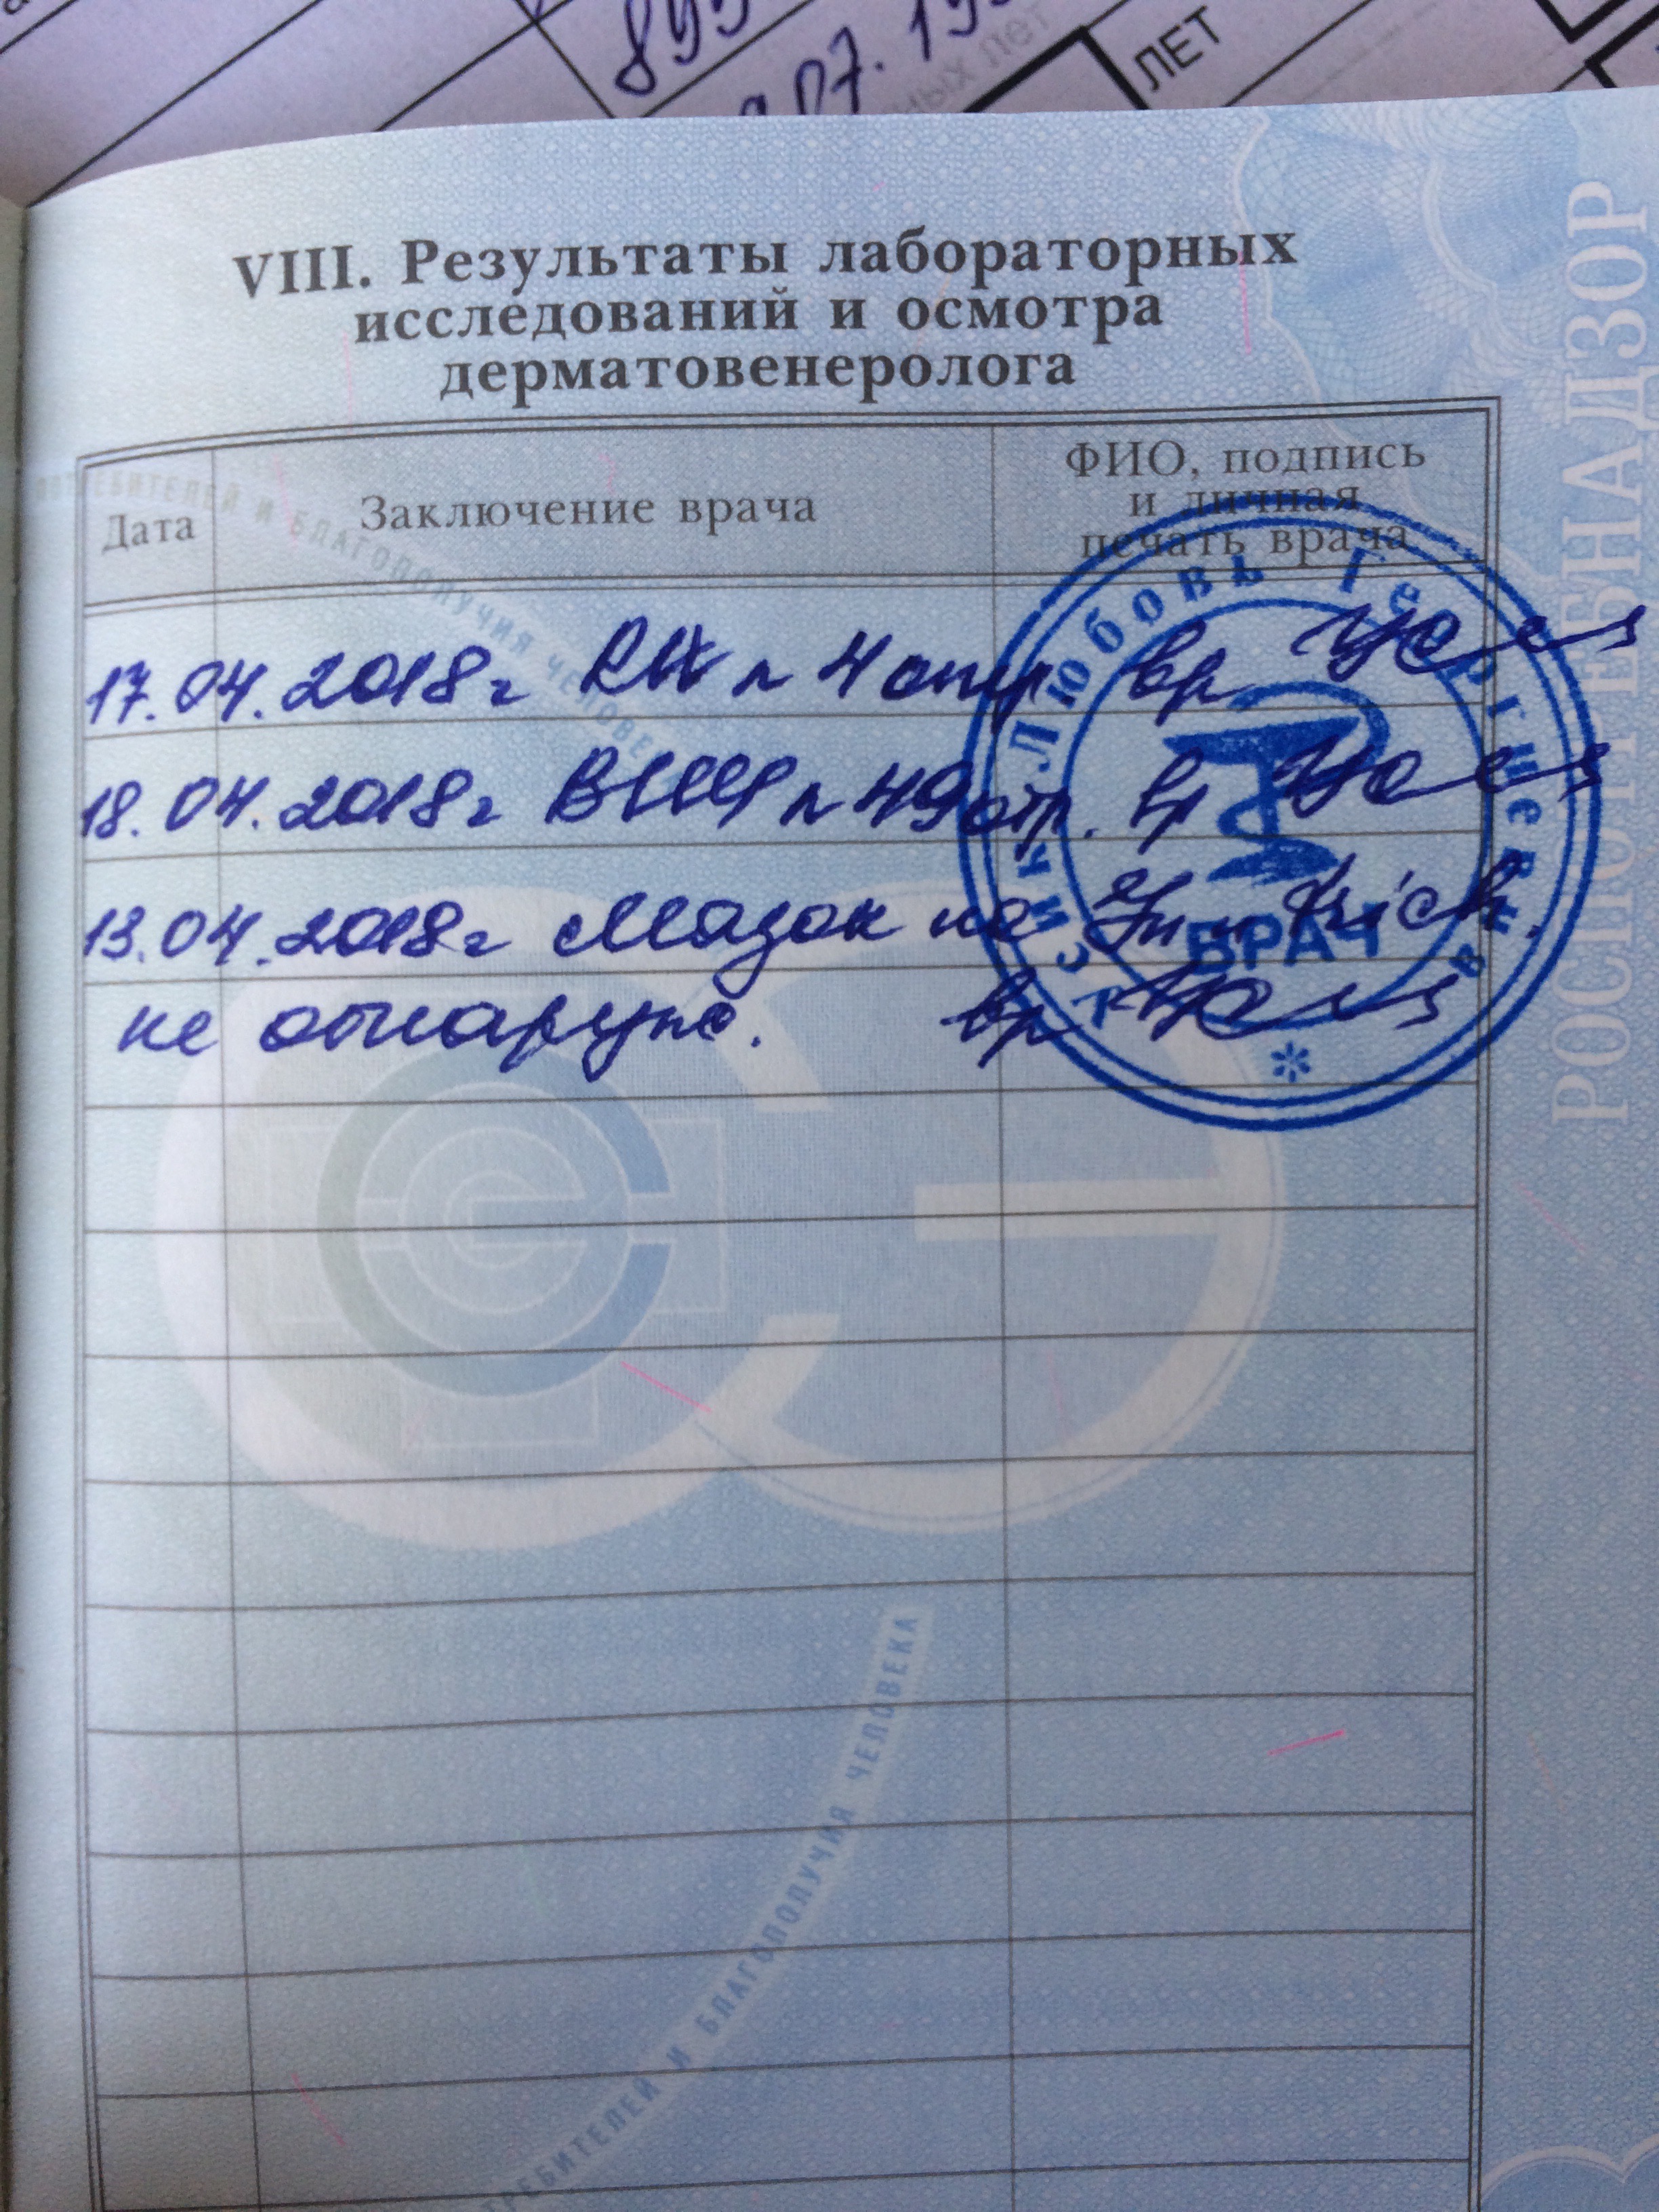 07. 19
ЛЕТ
VIII. Результаты лабораторных
исследований и осмотра
дерматовенеролога
Дата
Заключение врача
ФИО, подпись
и личная
печать врача
Любовь Георгиевна
ВРАЧ
17.04.2018г RW № 4 отр вр
18.04.2018г ВИЧ № 49 отр. вр
13.04.2018г Мазок на Gn и Trich.
не обнаруж. вр
РОСПОТРЕБНАДЗОР
ПОТРЕБИТЕЛЕЙ И БЛАГОПОЛУЧИЯ ЧЕЛОВЕКА
ПОТРЕБИТЕЛЕЙ И БЛАГОПОЛУЧИЯ ЧЕЛОВЕКА